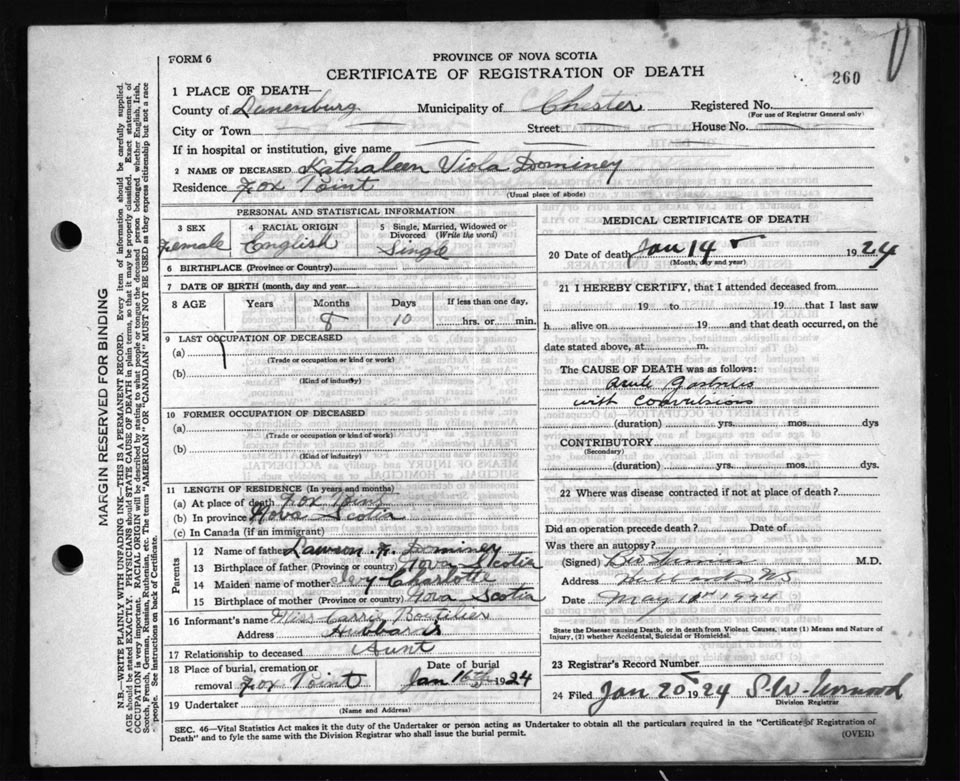 FORM 6
PROVINCE OF NOVA SCOTIA
CERTIFICATE OF REGISTRATION OF DEATH
260
1 PLACE OF DEATH—
County of Lunenburg Municipality of Chester Registered No.
(For use of Registrar General only)
City or Town Street House No.
If in hospital or institution, give name
2 NAME OF DECEASED Kathaleen Viola Dominey
Residence Fox Point
(Usual place of abode)
PERSONAL AND STATISTICAL INFORMATION
3 SEX 4 RACIAL ORIGIN 5 Single, Married, Widowed or Divorced (Write the word)
Female English Single
6 BIRTHPLACE (Province or Country)
7 DATE OF BIRTH (month, day and year)
8 AGE Years Months Days If less than one day,
8 10 hrs. or min.
9 LAST OCCUPATION OF DECEASED
(a)
(Trade or occupation or kind or work)
(b)
(Kind of industry)
10 FORMER OCCUPATION OF DECEASED
(a)
(Trade or occupation or kind of work)
(b)
(Kind of industry)
11 LENGTH OF RESIDENCE (In years and months)
(a) At place of death Fox Point
(b) In province Nova Scotia
(c) In Canada (if an immigrant)
Parents
12 Name of father Lawson F. Dominey
13 Birthplace of father (Province or country) Nova Scotia
14 Maiden name of mother Ivy Charlotte
15 Birthplace of mother (Province or country) Nova Scotia
16 Informant's name Miss Carrie Boutilier
Address Hubbards
17 Relationship to deceased Aunt
18 Place of burial, cremation or removal Fox Point Date of burial Jan 16th 1924
19 Undertaker
(Name and Address)
MEDICAL CERTIFICATE OF DEATH
20 Date of death Jan 14 1924
(Month, day and year)
21 I HEREBY CERTIFY, that I attended deceased from
19 to 19 that I last saw
h alive on 19 and that death occurred, on the
date stated above, at m.
The CAUSE OF DEATH was as follows:
Acute Gastritis
with convulsions
(duration) yrs. mos. dys
CONTRIBUTORY
(Secondary)
(duration) yrs. mos. dys.
22 Where was disease contracted if not at place of death?
Did an operation precede death? Date of
Was there an autopsy?
(Signed) M.D.
Address Hubbards NS
Date May 1924
State the Disease causing Death, or in death from Violent Causes, state (1) Means and Nature of
Injury, (2) whether Accidental, Suicidal or Homicidal.
23 Registrar's Record Number
24 Filed Jan 20 1924 S. W.
Division Registrar
SEC. 46—Vital Statistics Act makes it the duty of the Undertaker or person acting as Undertaker to obtain all the particulars required in the "Certificate of Registration of
Death" and to fyle the same with the Division Registrar who shall issue the burial permit. (OVER)
MARGIN RESERVED FOR BINDING
N.B.—WRITE PLAINLY WITH UNFADING INK—THIS IS A PERMANENT RECORD. Every item of information should be carefully supplied.
AGE should be stated EXACTLY. PHYSICIANS should STATE CAUSE OF DEATH in plain terms, so that it may be properly classified. Exact statement of
OCCUPATION is very important. RACIAL ORIGIN will be described by stating to what people or tongue the deceased person belonged whether English, Irish,
Scotch, French, German, Russian, Ruthenian, etc. The terms "AMERICAN" OR "CANADIAN" MUST NOT BE USED as they express citizenship but not a race
people. See instructions on back of Certificate.